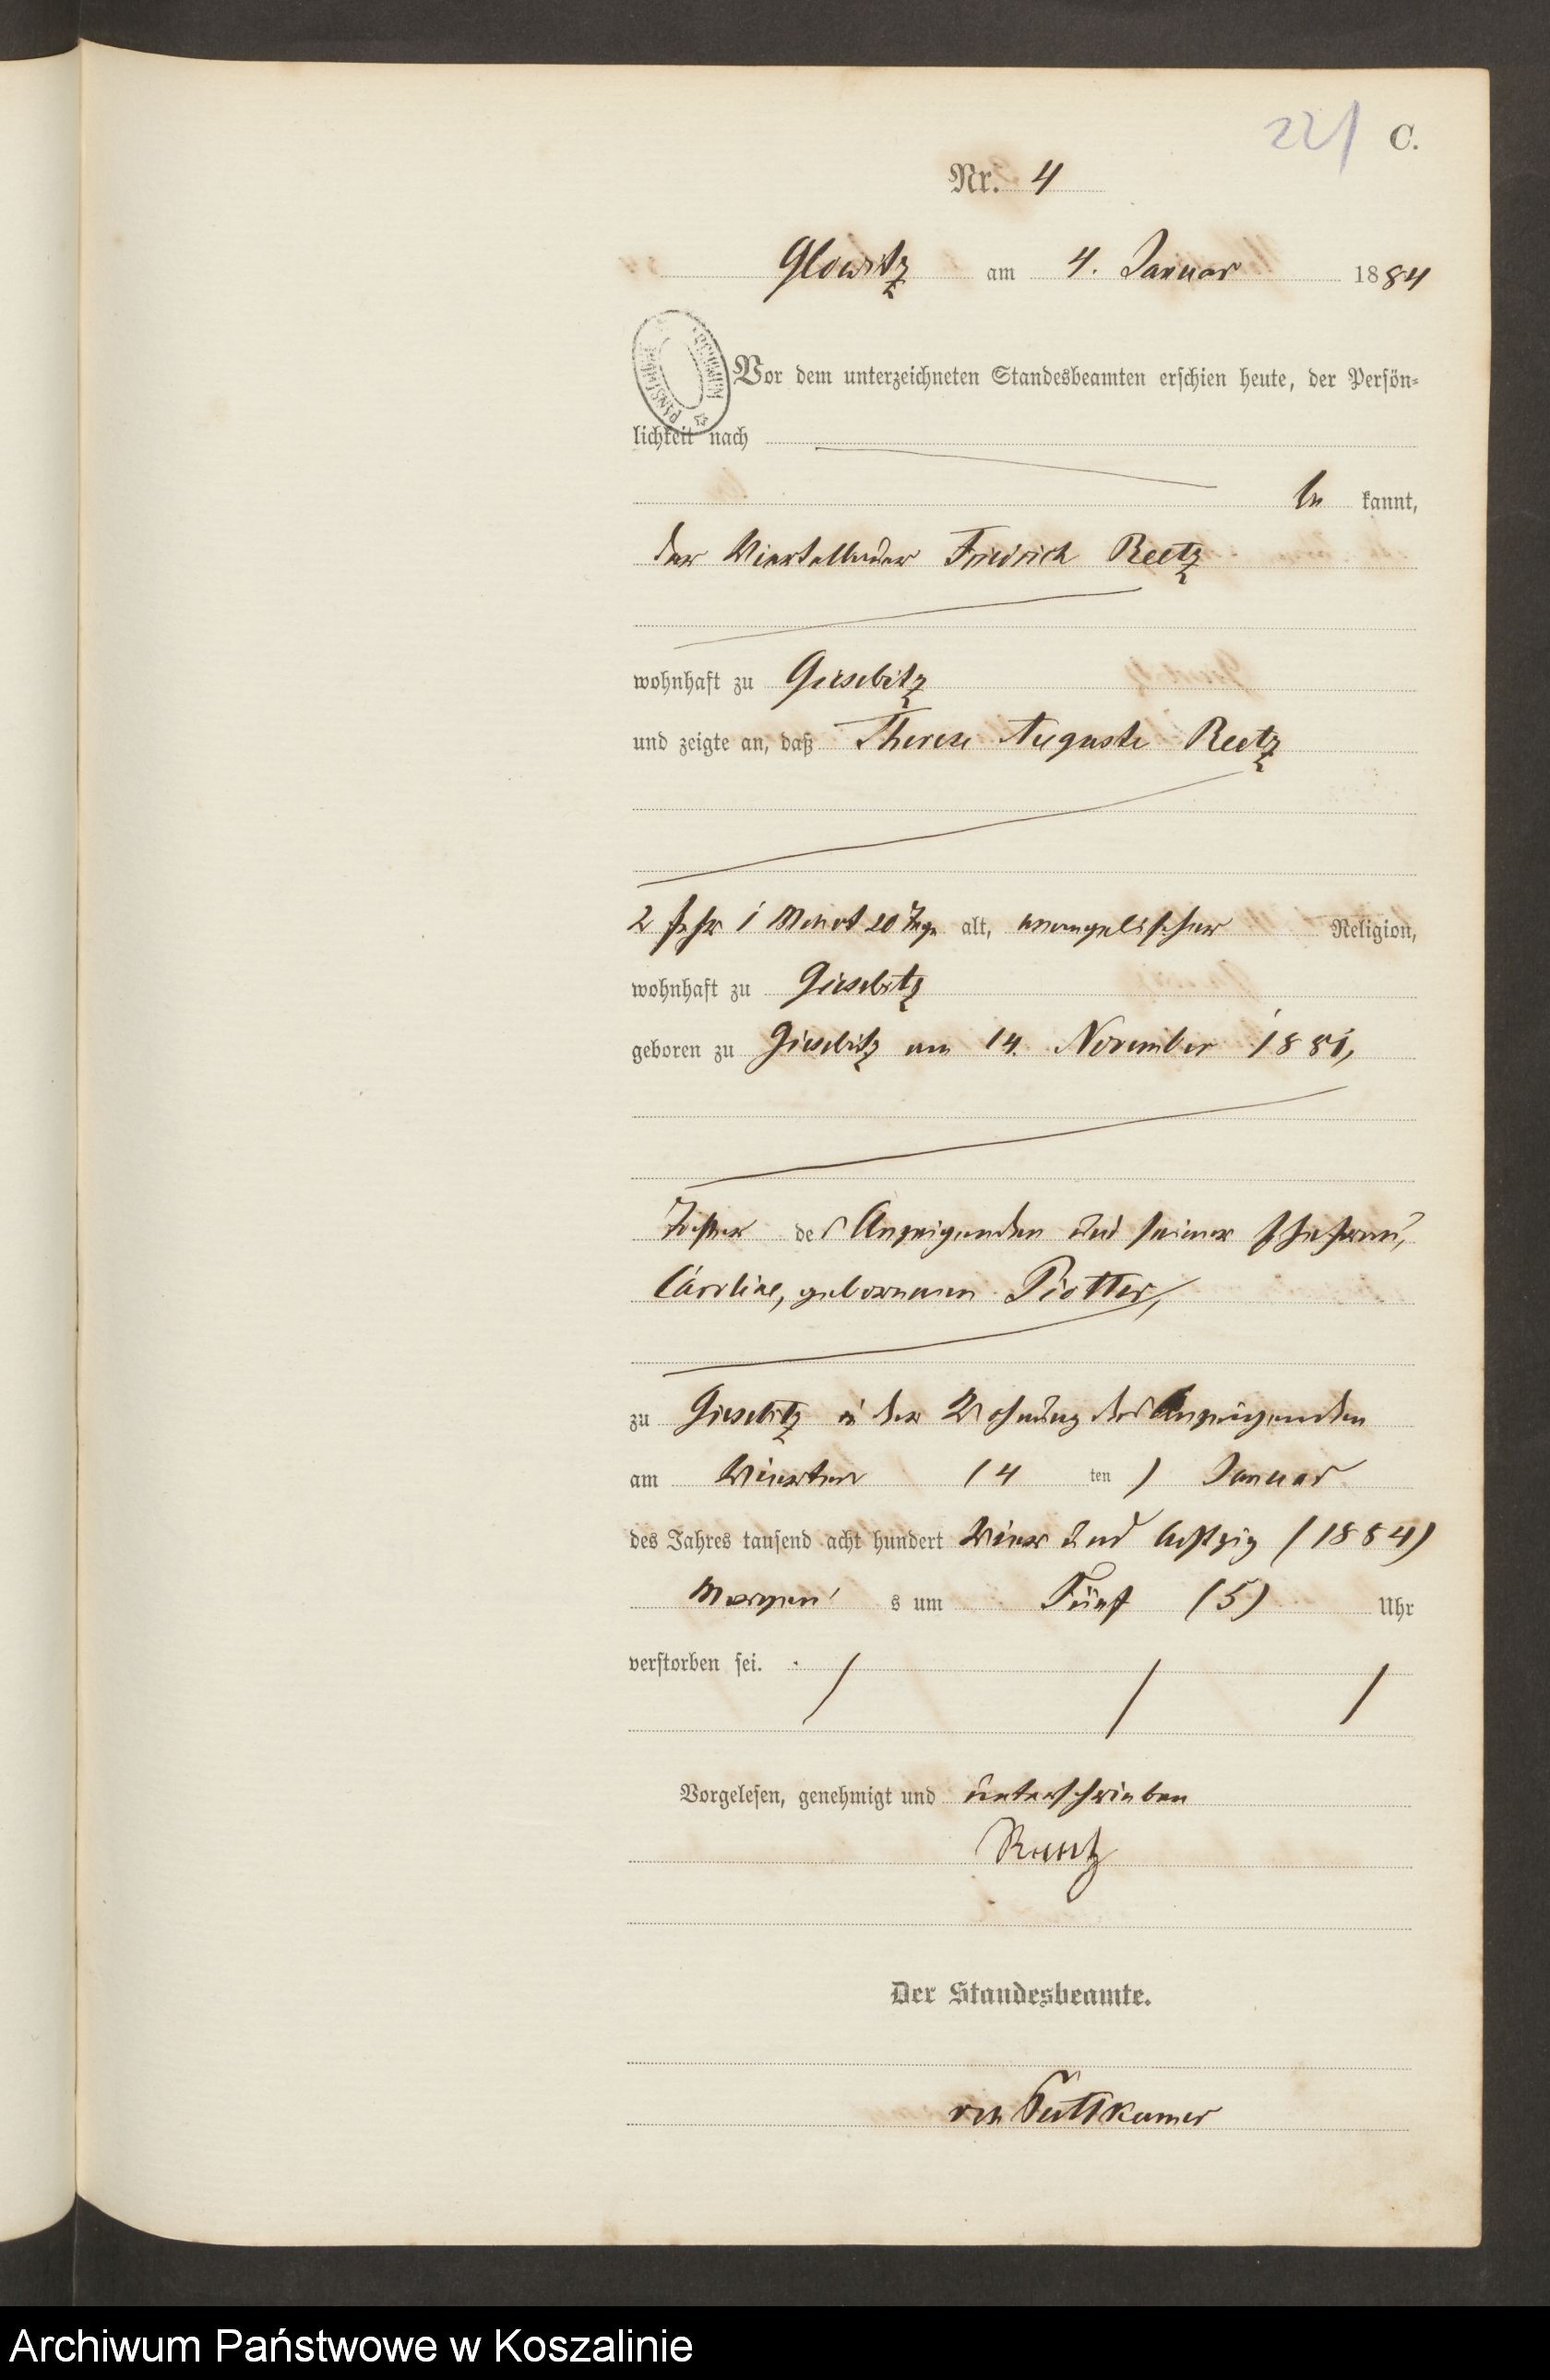 221 C.
Nr. 4
Glowitz am 4. Januar 1884
Vor dem unterzeichneten Standesbeamten erschien heute, der Persön-
lichkeit nach
be kannt,
der Viertelbauer Friedrich Reetz
wohnhaft zu Giesebitz
und zeigte an, daß Therese Auguste Reetz
2 Jahr 1 Monat 20 Tage alt, evangelischer Religion,
wohnhaft zu Giesebitz
geboren zu Giesebitz am 14. November 1881,
Tochter des Anzeigenden und seiner Ehefrau,
Caroline, geborenen Piotter,
zu Giesebitz in der Wohnung des Anzeigenden
am Vierten (4 ten ) Januar
des Jahres tausend acht hundert Vier und Achtzig (1884)
Morgen s um Fünf (5) Uhr
verstorben sei.
Vorgelesen, genehmigt und unterschrieben
Der Standesbeamte.
von Puttkamer
Archiwum Państwowe w Koszalinie